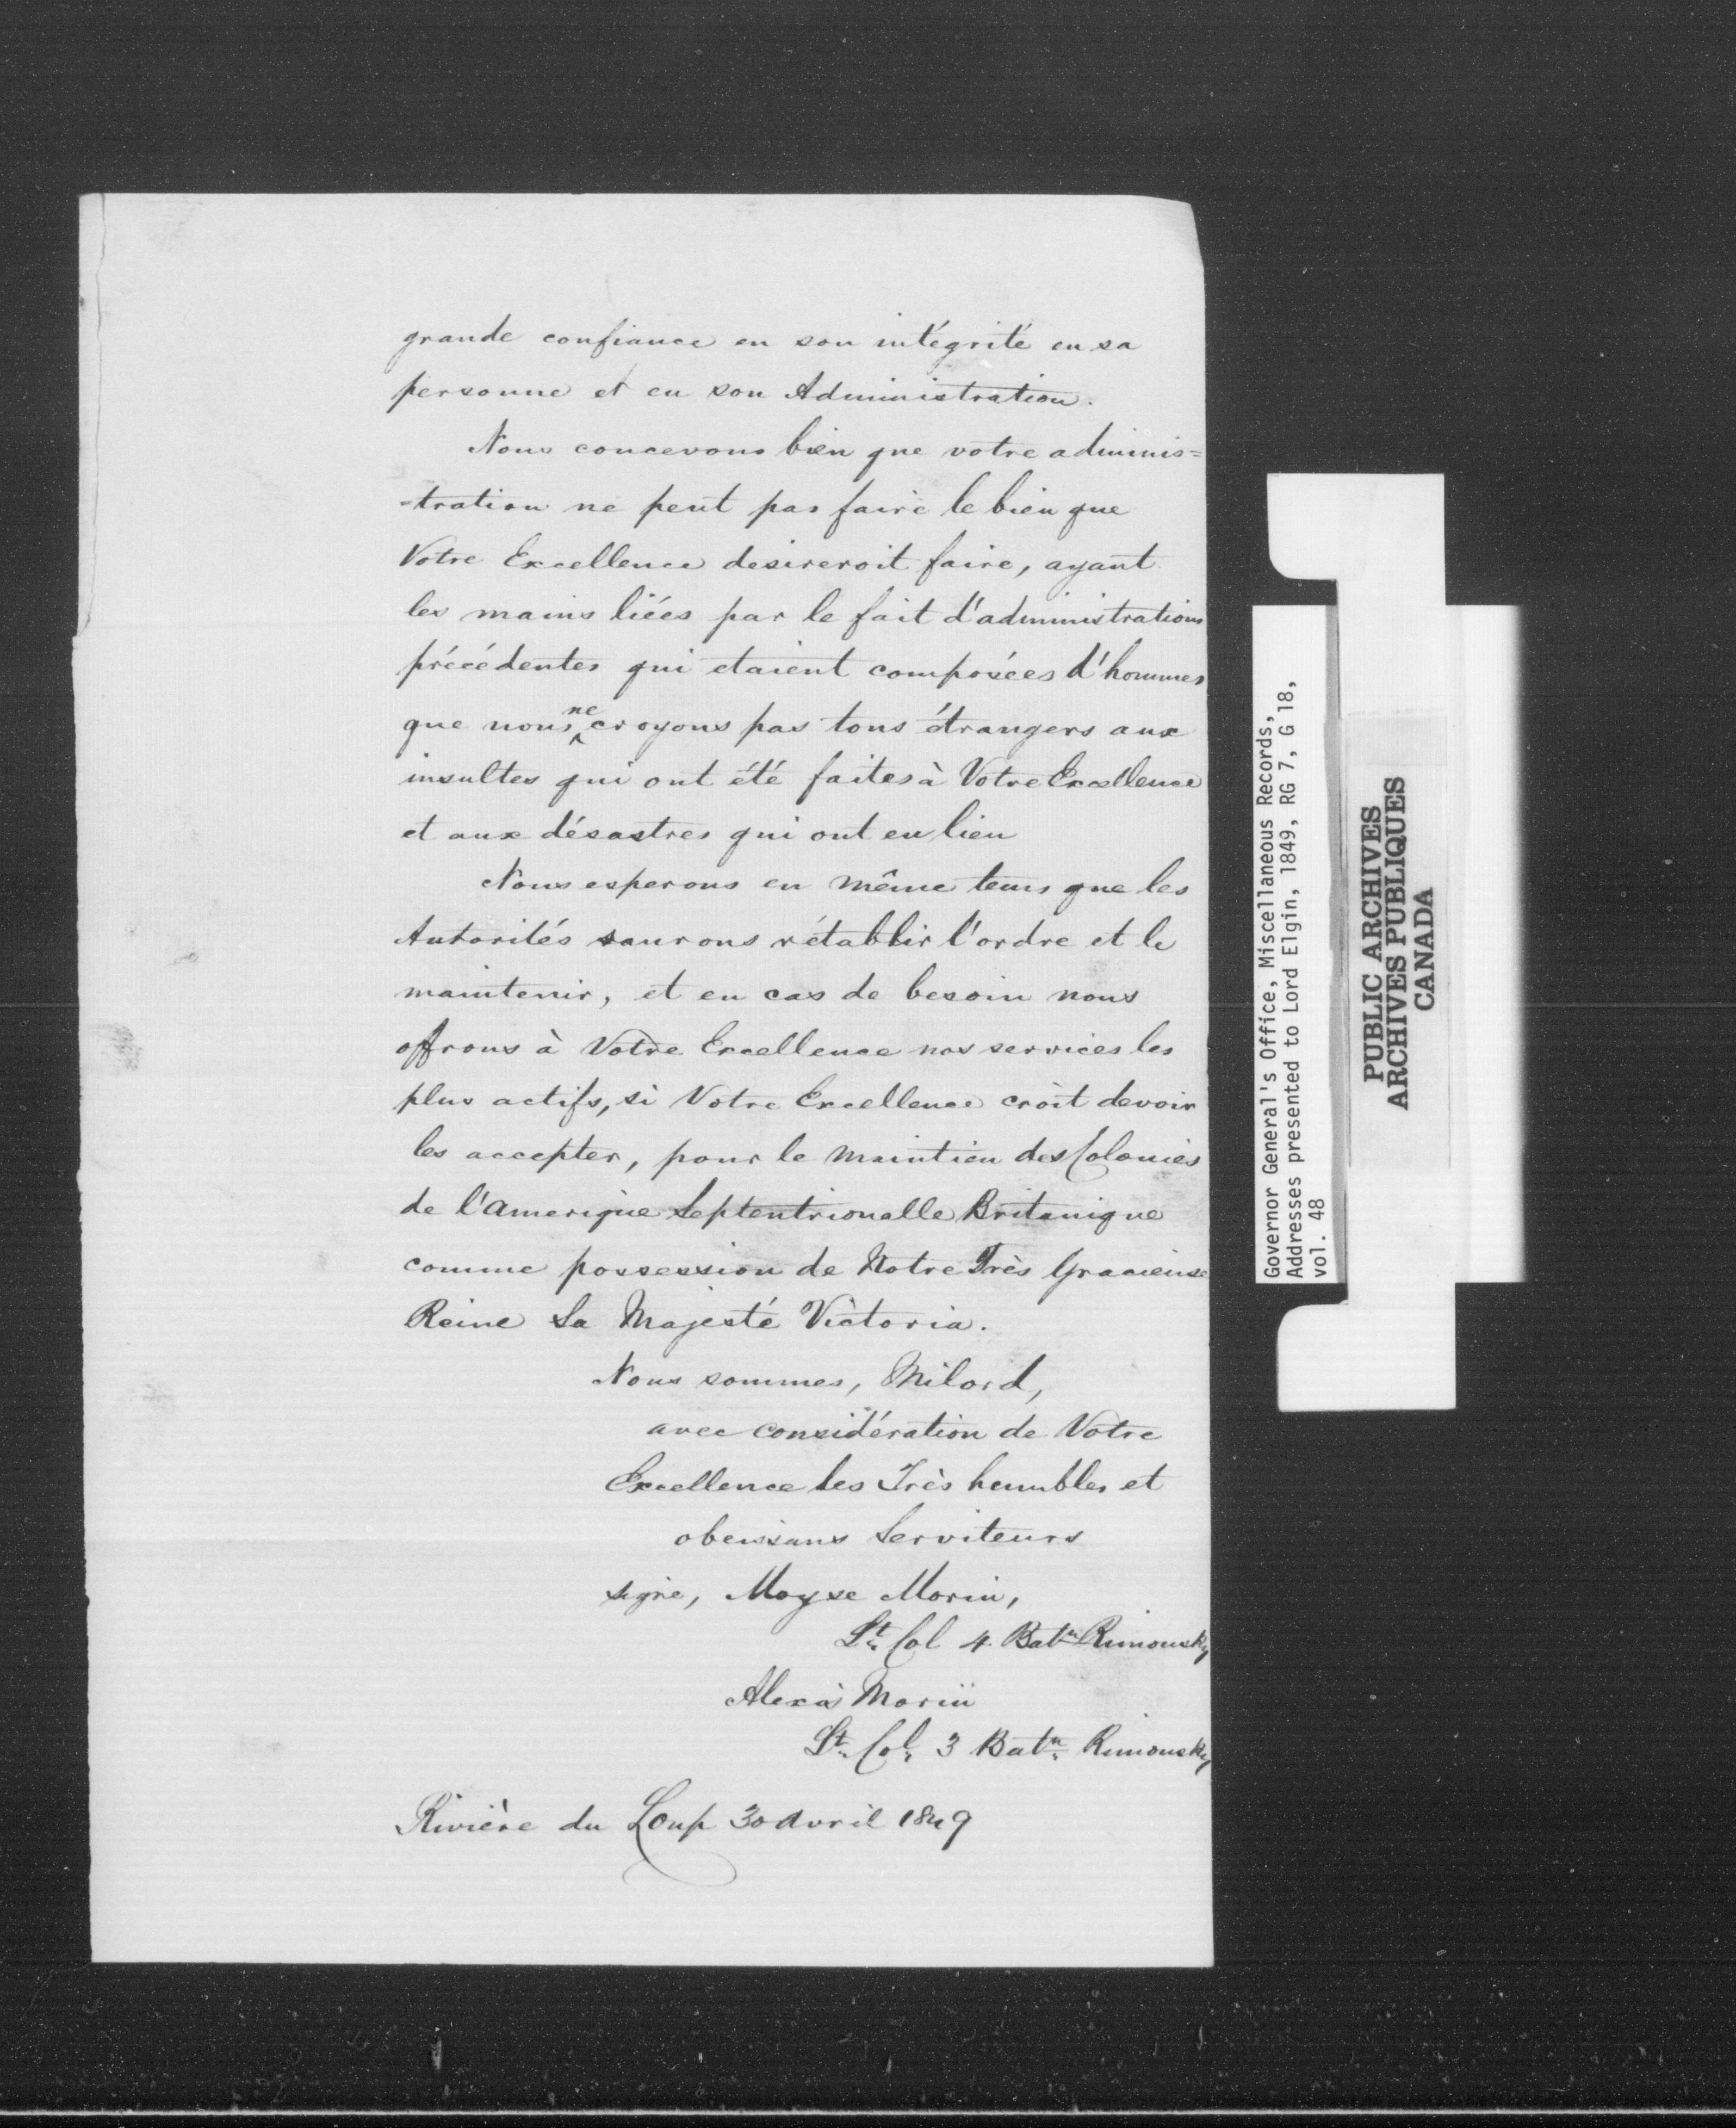 grande confiance en son intégrité en sa
personne et en son Administration.
Nous concevons bien que votre adminis=
=tration ne peut pas faire le bien que
Votre Excellence desireroit faire, ayant
les mains liées par le fait d'administrations
précédentes qui etaient composées d'hommes
que nous ne croyons pas tous étrangers aux
insultes qui ont été faites à Votre Excellence
et aux désastres qui ont eu lieu
Nous esperons en même tems que les
Autorités saurons rétablir l'ordre et le
maintenir, et en cas de besoin nous
offrons à Votre Excellence nos services les
plus actifs, si Votre Excellence croit devoir
les accepter, pour le maintien des Colonies
de l'Amerique Septentrionalle Britanique
comme possession de Notre Très Gracieuse
Reine Sa Majesté Victoria.
Nous sommes, Milord,
avec considération de Votre
Excellence les Très humbles et
obeissans Serviteurs
signé, Moyse Morin,
Lt. Col 4 Batn Rimousky
Alexis Morin
Lt. Col. 3 Batn. Rimousky
Rivière du Loup 30 Avril 1849
Governor General's Office, Miscellaneous Records,
Addresses presented to Lord Elgin, 1849, RG 7, G 18,
vol. 48
PUBLIC ARCHIVES
ARCHIVES PUBLIQUES
CANADA